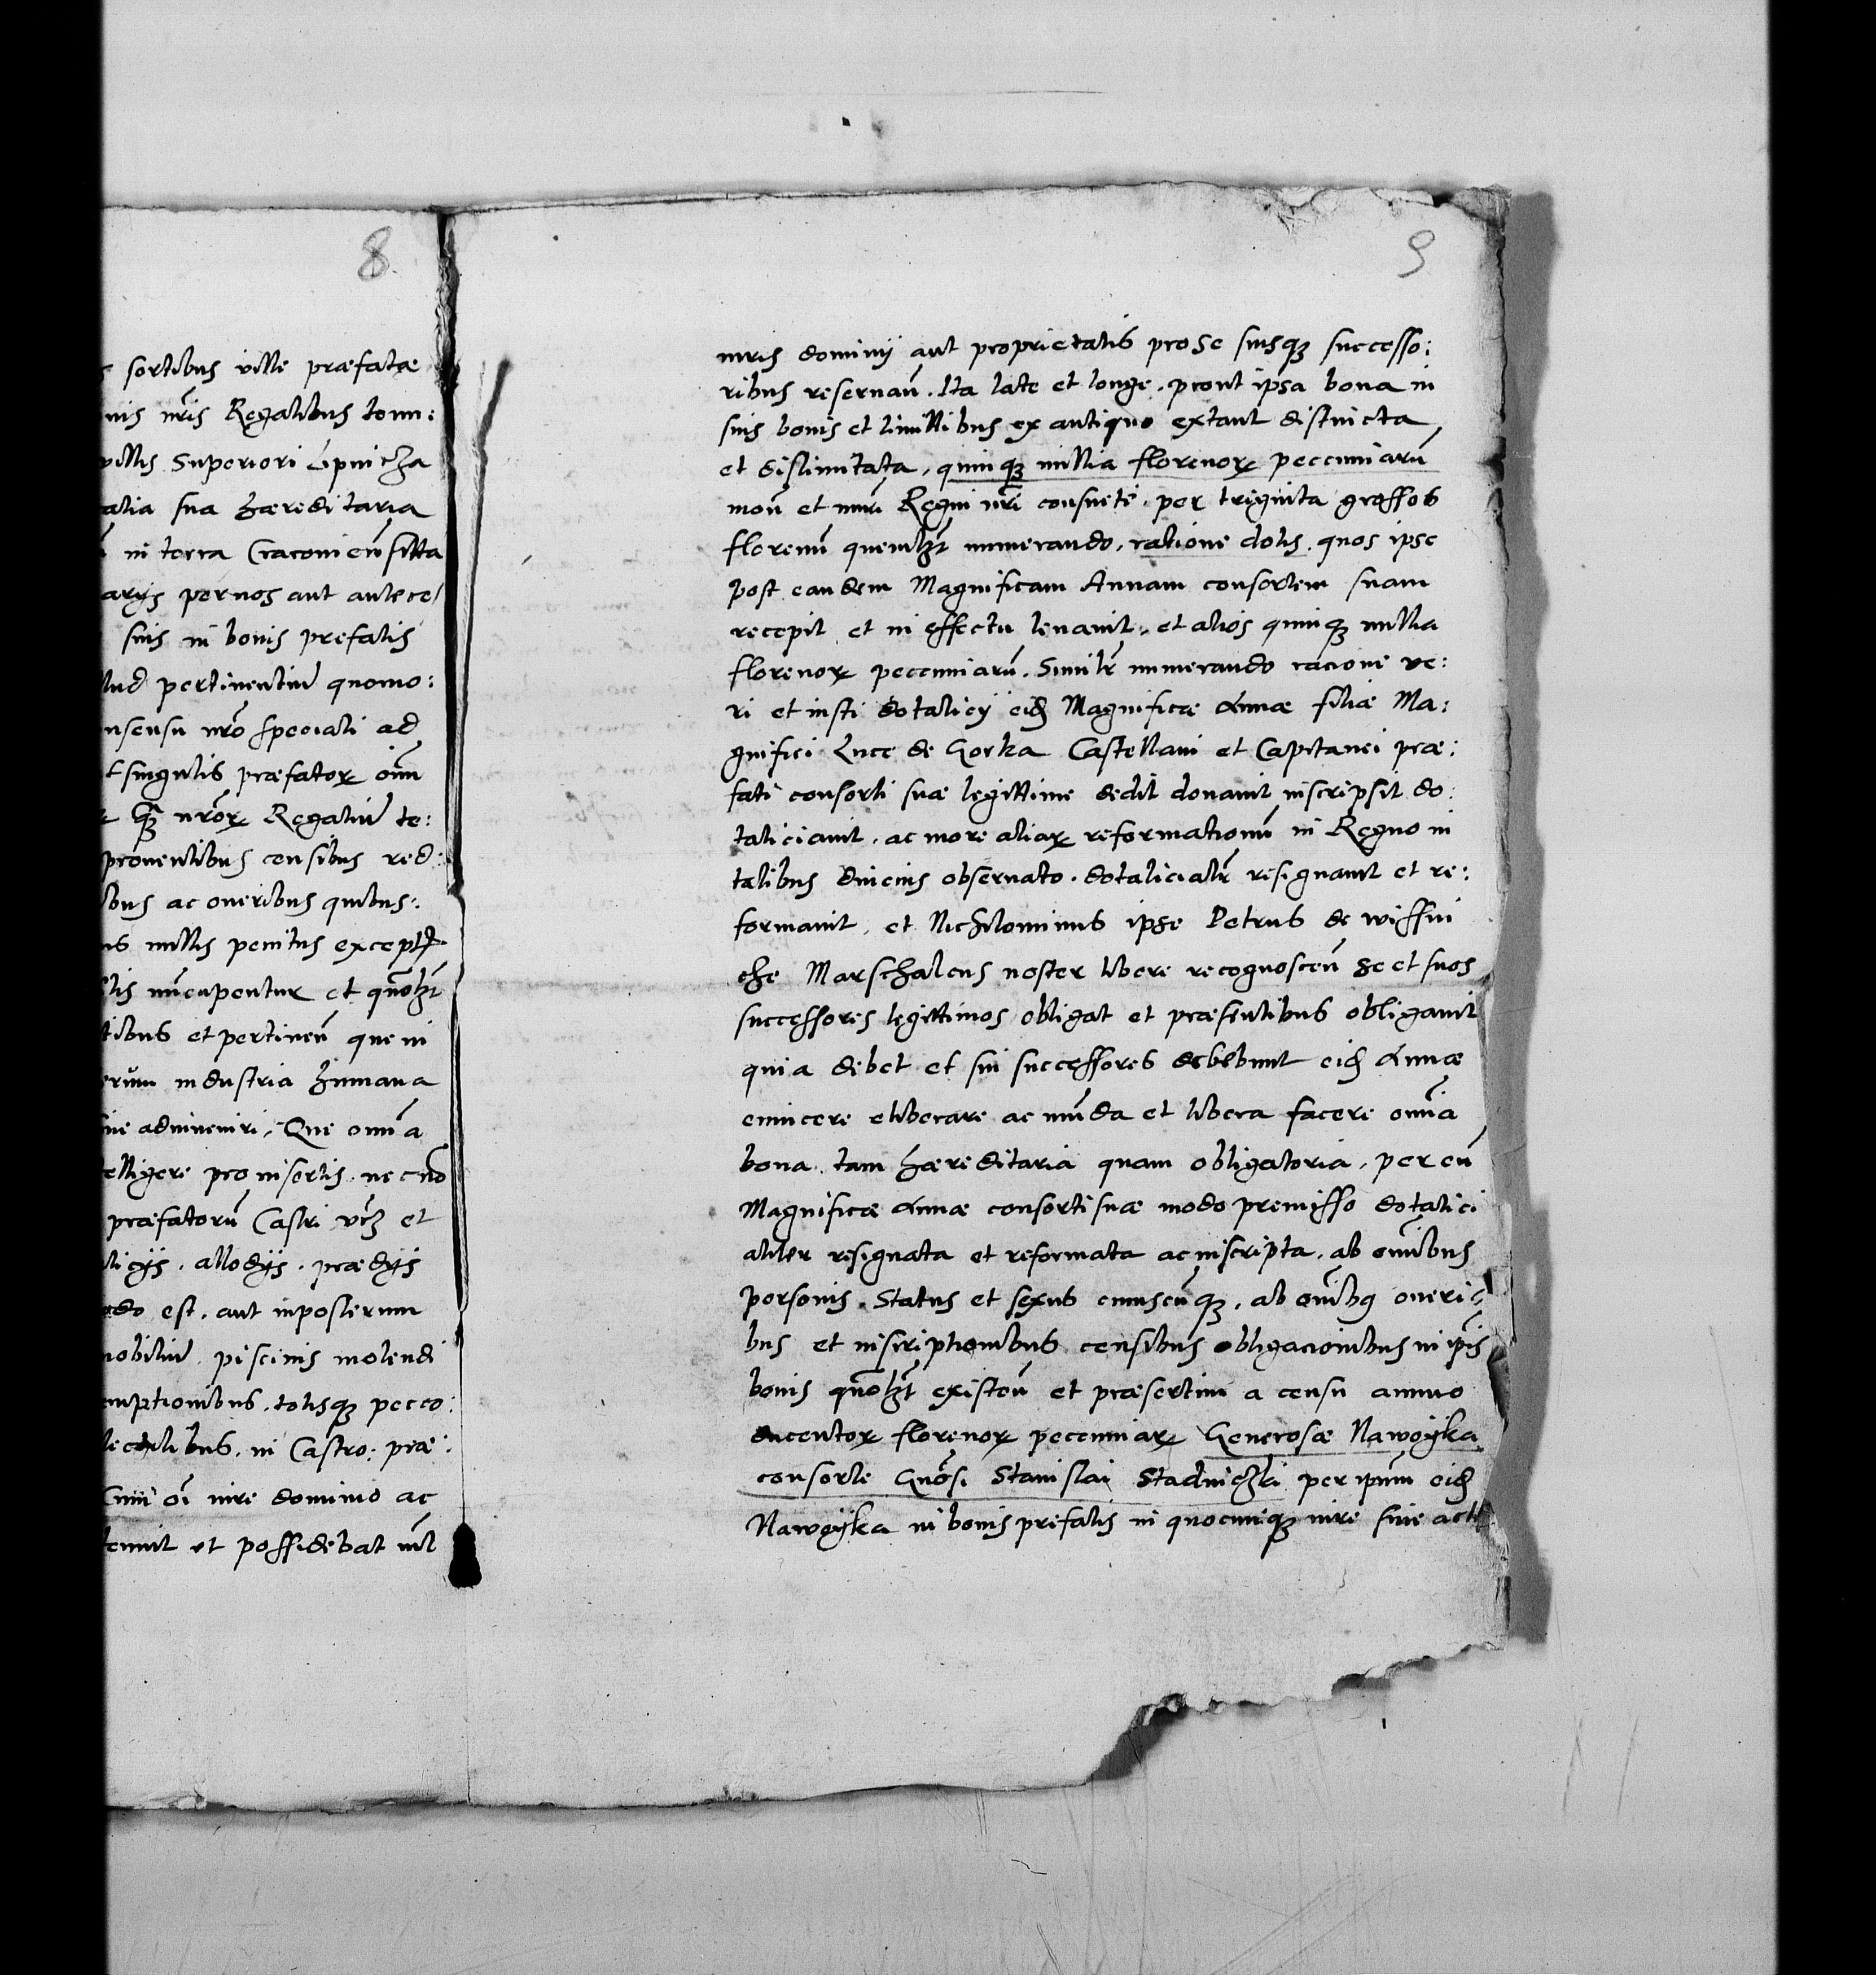 8.
sortibus ville præfatæ
nis nr̃is Regalibus tenu:
villis Superiori Lipnicza
alia sua hæreditaria
in terra Cracouieñ sitta
arijs per nos aut antece/
suis in bonis prefatis
pertinentiũ quomo:
nsensu nr̃o speciali ad
t singulis præfatoꝝ oĩm
nr̃oꝝ Regaliũ te:
prouentibus censibus red:
ibus ac oneribus quibus:
us nullis penitus exceptꝭ
nũcupentur et quõlꝫt
tibus et pertineñ que in
erum industria humana
siue adinueniri, Que omĩa
elligere pro insertis. necnõ
præfatorũ Castri vꝫ et
allodijs. prædijs
do est. aut inposterum
nobiliũ piscinis molendi
emptionibus. totisqꝫ pecco:
in Castro: præ:
iure dominio ac
tenuit et possidebat
9
iuris dominij aut proprietatis pro se suisqꝫ successo:
ribus reseruañ. Ita late et longe. prout ipsa bona in
suis bonis et limittibus ex antiquo extant distincta
et dislimitata, quinqꝫ millia florenoꝝ peccuniarũ
moñ et nuri Regni nr̃i consuete per triginta grossos
florenũ quemlꝫt numerando, ratione dotis. quos ipse
post eandem Magnificam Annam consortem suam
recepit et in effectu leuauit, et alios quinqꝫ millia
florenoꝝ peccuniarũ. Similr̃ numerando racione ve:
ri et iusti dotalicij eidẽ Magnificæ Annæ filiæ Ma:
gnifici Luce de Gorka Castellani et Capitanei præ:
fati consorti suæ legittime dedit donauit inscripsit do:
taliciauit. ac more aliaꝝ reformationũ in Regno in
talibus diucius obseruato. dotalicialr̃ resignauit et re:
formauit, et Nichilominus ipse Petrus de wissni
che Marschalcus noster libere recognosceñ se et suos
successores legittimos obligat et præsentibus obligauit
quia debet et sui successores debebunt eidẽ Annæ
euincere eliberare ac mũda et libera facere omĩa
bona. tam hæreditaria quam obligatoria, per eũ
Magnificæ Annæ consorti suæ modo premisso dotalici
aliter resignata et reformata ac inscripta. ab omĩbus
personis. Status et sexus cuiuscũqꝫ. ab omĩbꝯ oneri:
bus et inscriptionibus censibus obligacionibus in ip̃is
bonis quõlꝫt existeñ et præsertim a censu annuo
ducentoꝝ florenoꝝ peccuniaꝝ Generosæ Nawoyka
consorte Gnõsi Stanislai Stadniczki per ipsum eidẽ
Nawoyka in bonis prefatis in quocunqꝫ iure siue actꝭ